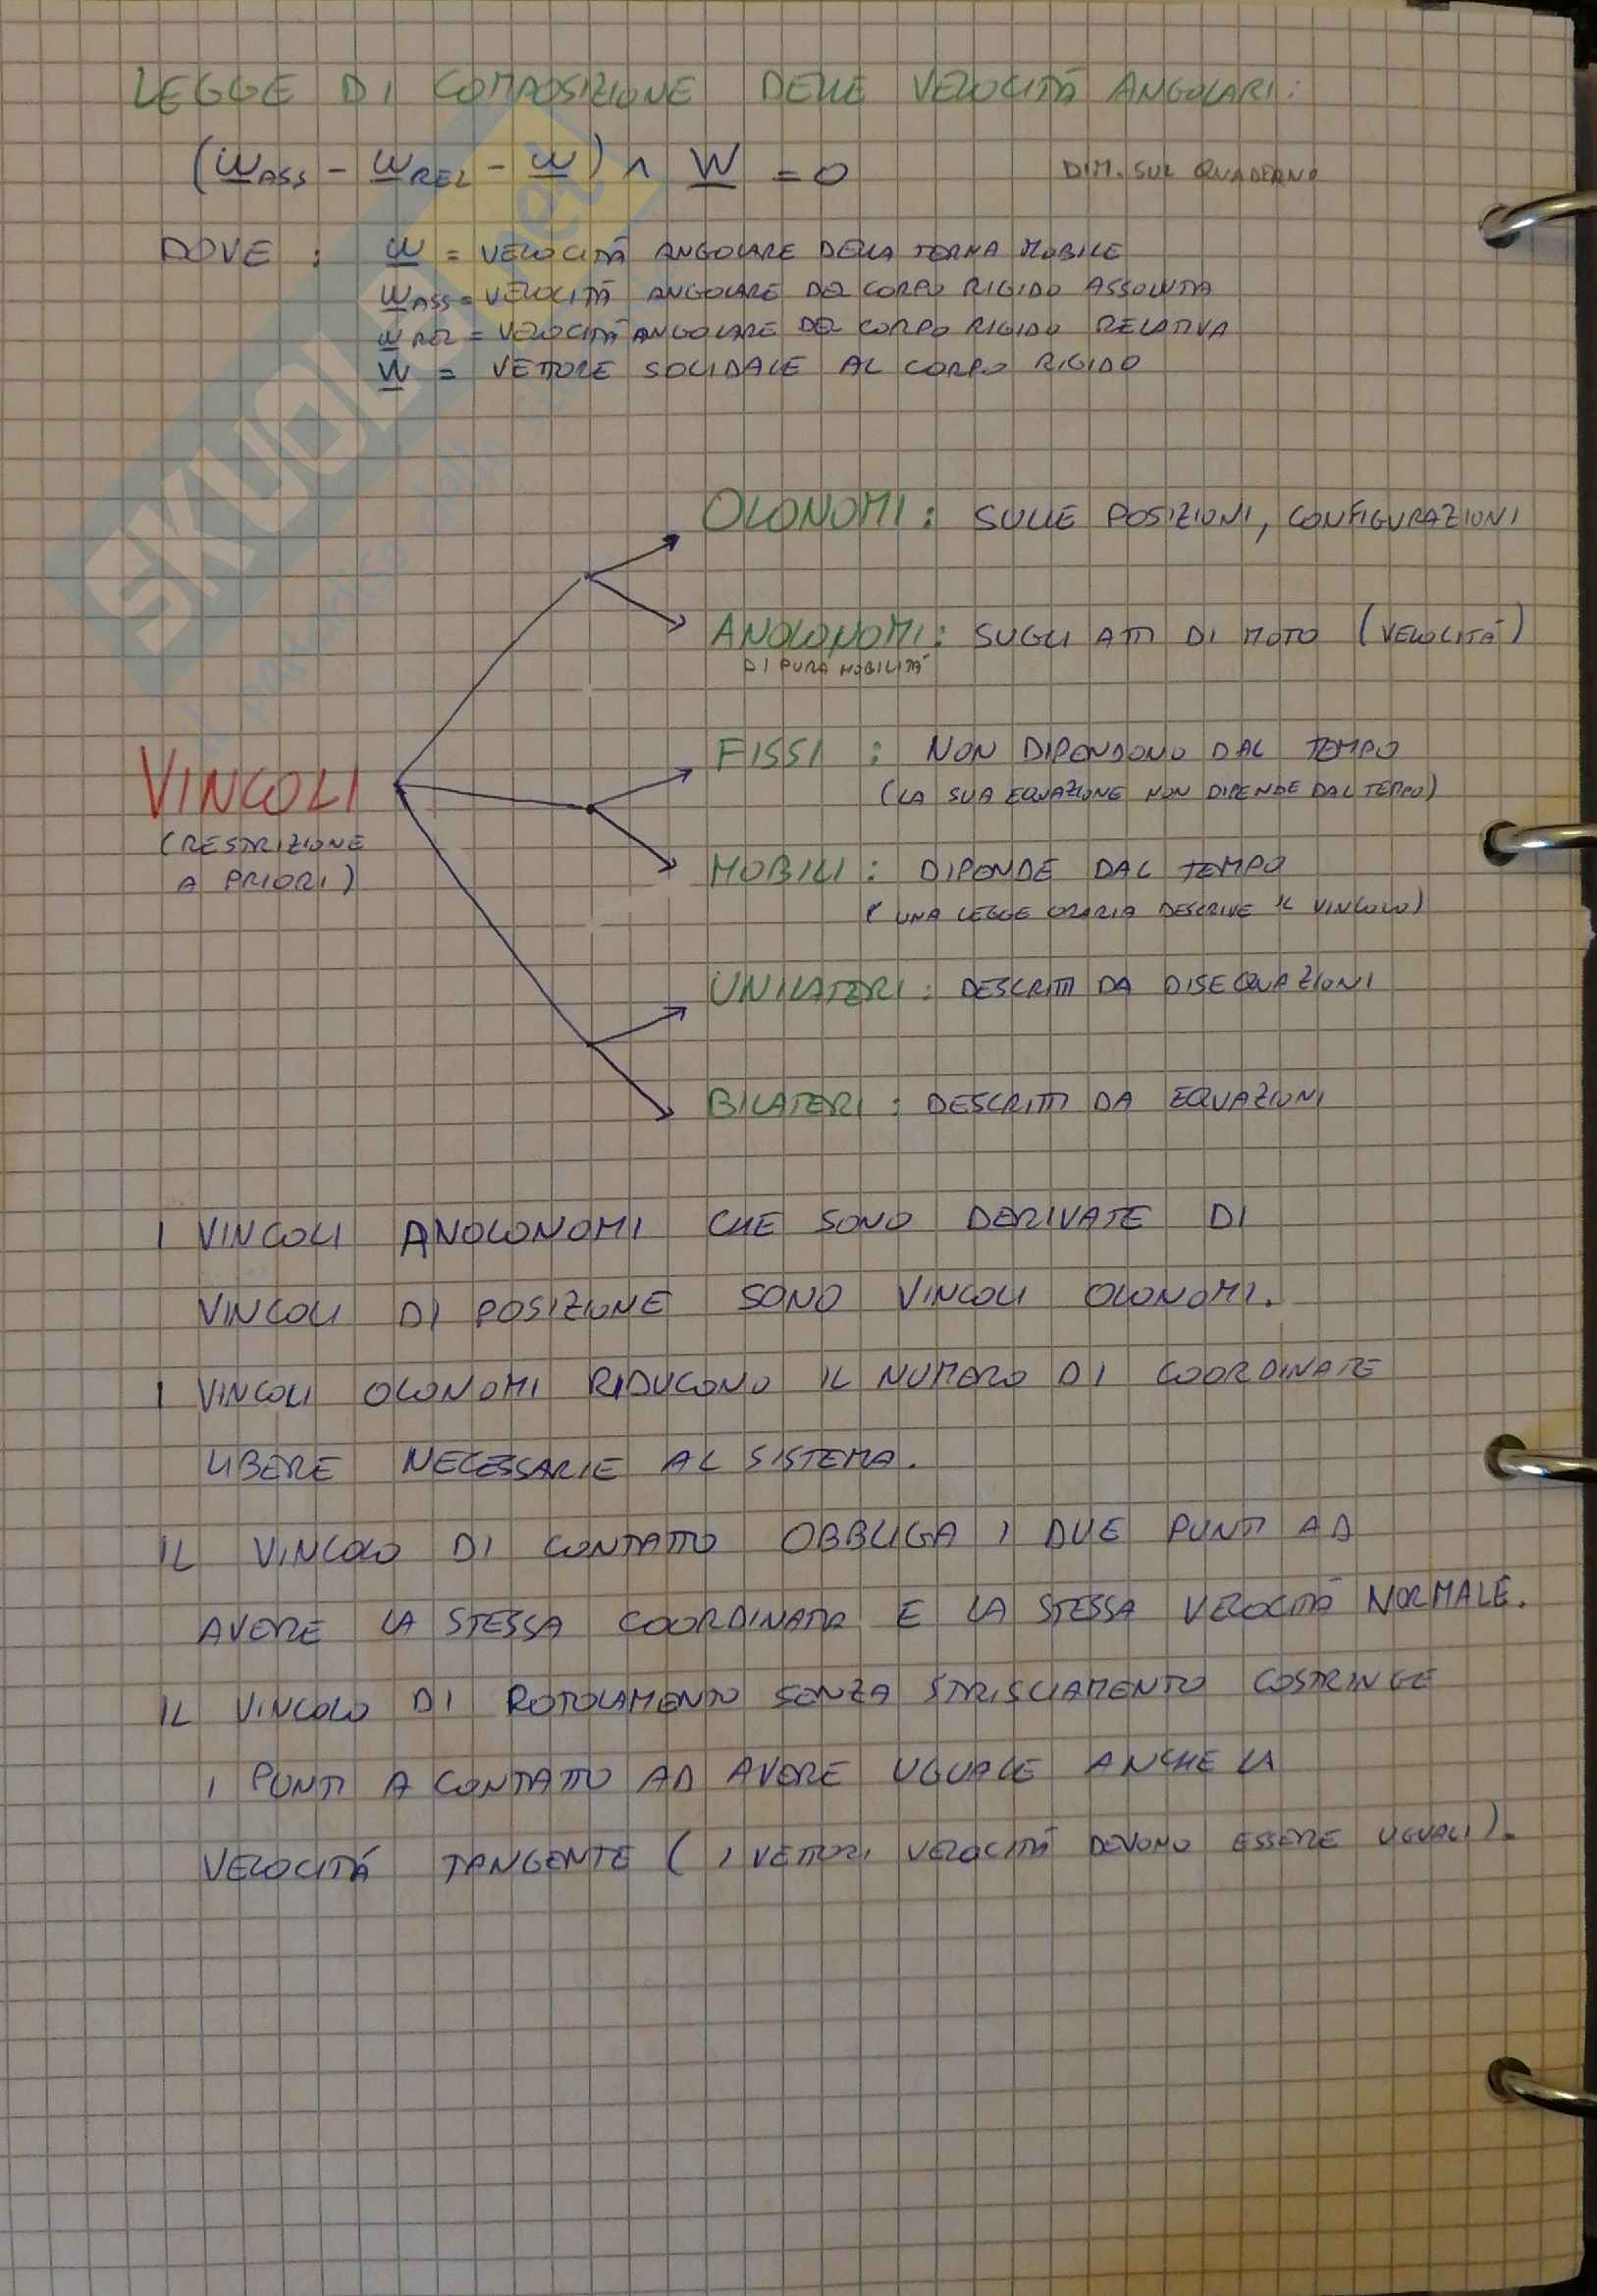 LEGGE DI COMPOSIZIONE DELLE VELOCITÁ ANGOLARI:
(ω ASS - ω REL - ω) ∧ W = 0 DIM. SUL QUADERNO
DOVE : ω = VELOCITÁ ANGOLARE DELLA TERNA MOBILE
ω ASS = VELOCITÁ ANGOLARE DEL CORPO RIGIDO ASSOLUTA
ω REL = VELOCITÁ ANGOLARE DEL CORPO RIGIDO RELATIVA
W = VETTORE SOLIDALE AL CORPO RIGIDO
OLONOMI: SULLE POSIZIONI, CONFIGURAZIONI
ANOLONOMI: SUGLI ATTI DI MOTO (VELOCITÁ)
DI PURA MOBILITÁ
FISSI : NON DIPENDONO DAL TEMPO
(LA SUA EQUAZIONE NON DIPENDE DAL TEMPO)
VINCOLI
(RESTRIZIONE
A PRIORI)
MOBILI : DIPENDE DAL TEMPO
(UNA LEGGE ORARIA DESCRIVE IL VINCOLO)
UNILATERI : DESCRITTI DA DISEQUAZIONI
BILATERI : DESCRITTI DA EQUAZIONI
I VINCOLI ANOLONOMI CHE SONO DERIVATE DI
VINCOLI DI POSIZIONE SONO VINCOLI OLONOMI.
I VINCOLI OLONOMI RIDUCONO IL NUMERO DI COORDINATE
LIBERE NECESSARIE AL SISTEMA.
IL VINCOLO DI CONTATTO OBBLIGA I DUE PUNTI AD
AVERE LA STESSA COORDINATA E LA STESSA VELOCITÁ NORMALE.
IL VINCOLO DI ROTOLAMENTO SENZA STRISCIAMENTO COSTRINGE
I PUNTI A CONTATTO AD AVERE UGUALE ANCHE LA
VELOCITÁ TANGENTE (I VETTORI VELOCITÁ DEVONO ESSERE UGUALI).
SKUOLA.net